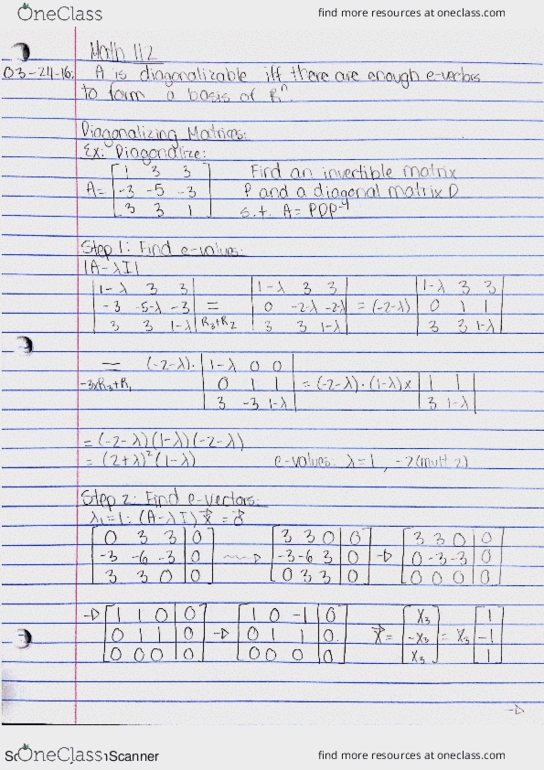 OneClass find more resources at oneclass.com
Math 112
03-24-16: A is diagonalizable iff there are enough e-vectors
to form a basis of Rⁿ.
Diagonalizing Matrices:
Ex: Diagonalize:
A= [1 3 3; -3 -5 -3; 3 3 1] Find an invertible matrix
P and a diagonal matrix D
s.t. A= PDP⁻¹
Step 1: Find e-values:
|A-λI|
|1-λ 3 3; -3 -5-λ -3; 3 3 1-λ| R₃+R₂ = |1-λ 3 3; 0 -2-λ -2-λ; 3 3 1-λ| = (-2-λ) |1-λ 3 3; 0 1 1; 3 3 1-λ|
= -3xR₂+R₁ (-2-λ)· |1-λ 0 0; 0 1 1; 3 -3 1-λ| = (-2-λ)·(1-λ)x |1 1; 3 1-λ|
= (-2-λ)(1-λ)(-2-λ)
= (2+λ)²(1-λ) e-values: λ=1, -2(mult. 2)
Step 2: Find e-vectors:
λ₁=1: (A-λI)x⃗ = 0⃗
[0 3 3 | 0; -3 -6 -3 | 0; 3 3 0 | 0] ~~> [3 3 0 | 0; -3 -6 3 | 0; 0 3 3 | 0] -> [3 3 0 | 0; 0 -3 -3 | 0; 0 0 0 | 0]
-> [1 1 0 | 0; 0 1 1 | 0; 0 0 0 | 0] -> [1 0 -1 | 0; 0 1 1 | 0; 0 0 0 | 0] x⃗ = [x₃; -x₃; x₃] = x₃ [1; -1; 1]
->
OneClass Scanner find more resources at oneclass.com